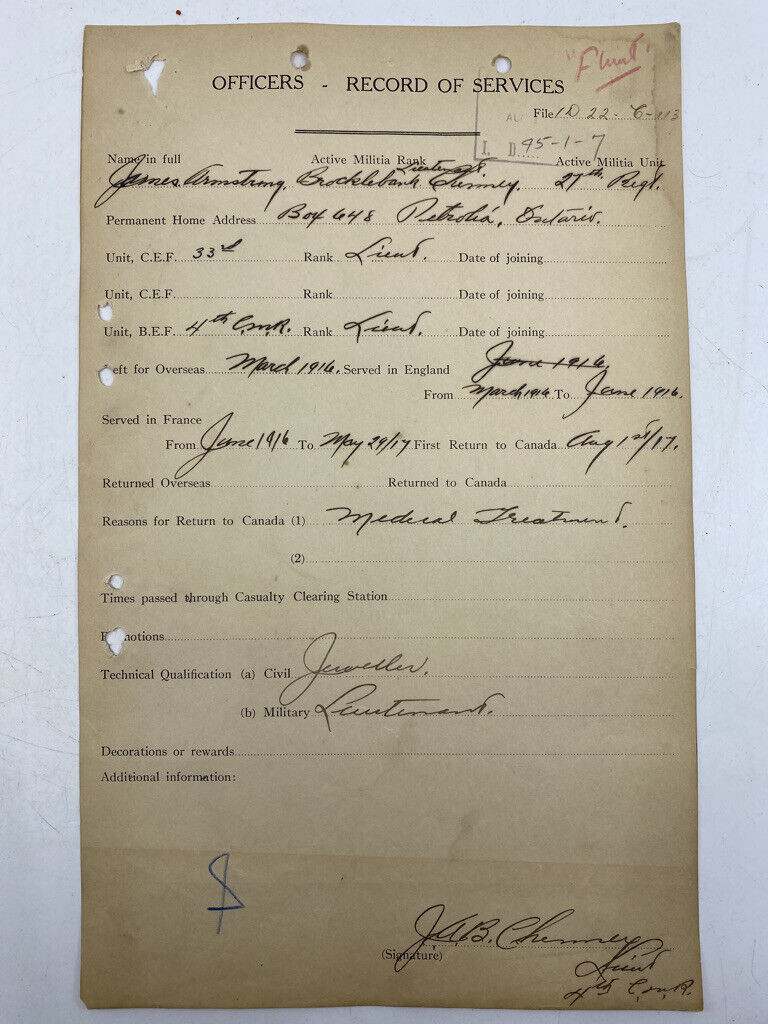 "Flint"
OFFICERS - RECORD OF SERVICES
File ID 22-C-113
I. D 95-1-7
Name in full Active Militia Rank Lieutenant. Active Militia Unit
James Armstrong, Brocklebank Chenney, 27th Regt.
Permanent Home Address Box 648 Petrolia, Ontario.
Unit, C.E.F. 33rd Rank Lieut. Date of joining
Unit, C.E.F. Rank Date of joining
Unit, B.E.F. 4th C.M.R. Rank Lieut. Date of joining
Left for Overseas March 1916. Served in England June 1916.
From March 1916 To June 1916.
Served in France
From June 1916 To May 29/17 First Return to Canada Aug 1st/17.
Returned Overseas Returned to Canada
Reasons for Return to Canada (1) Medical Treatment.
(2)
Times passed through Casualty Clearing Station
Promotions
Technical Qualification (a) Civil Jeweller.
(b) Military Lieutenant.
Decorations or rewards
Additional information:
J.A.B. Chenney
(Signature) Lieut
4th C.M.R.